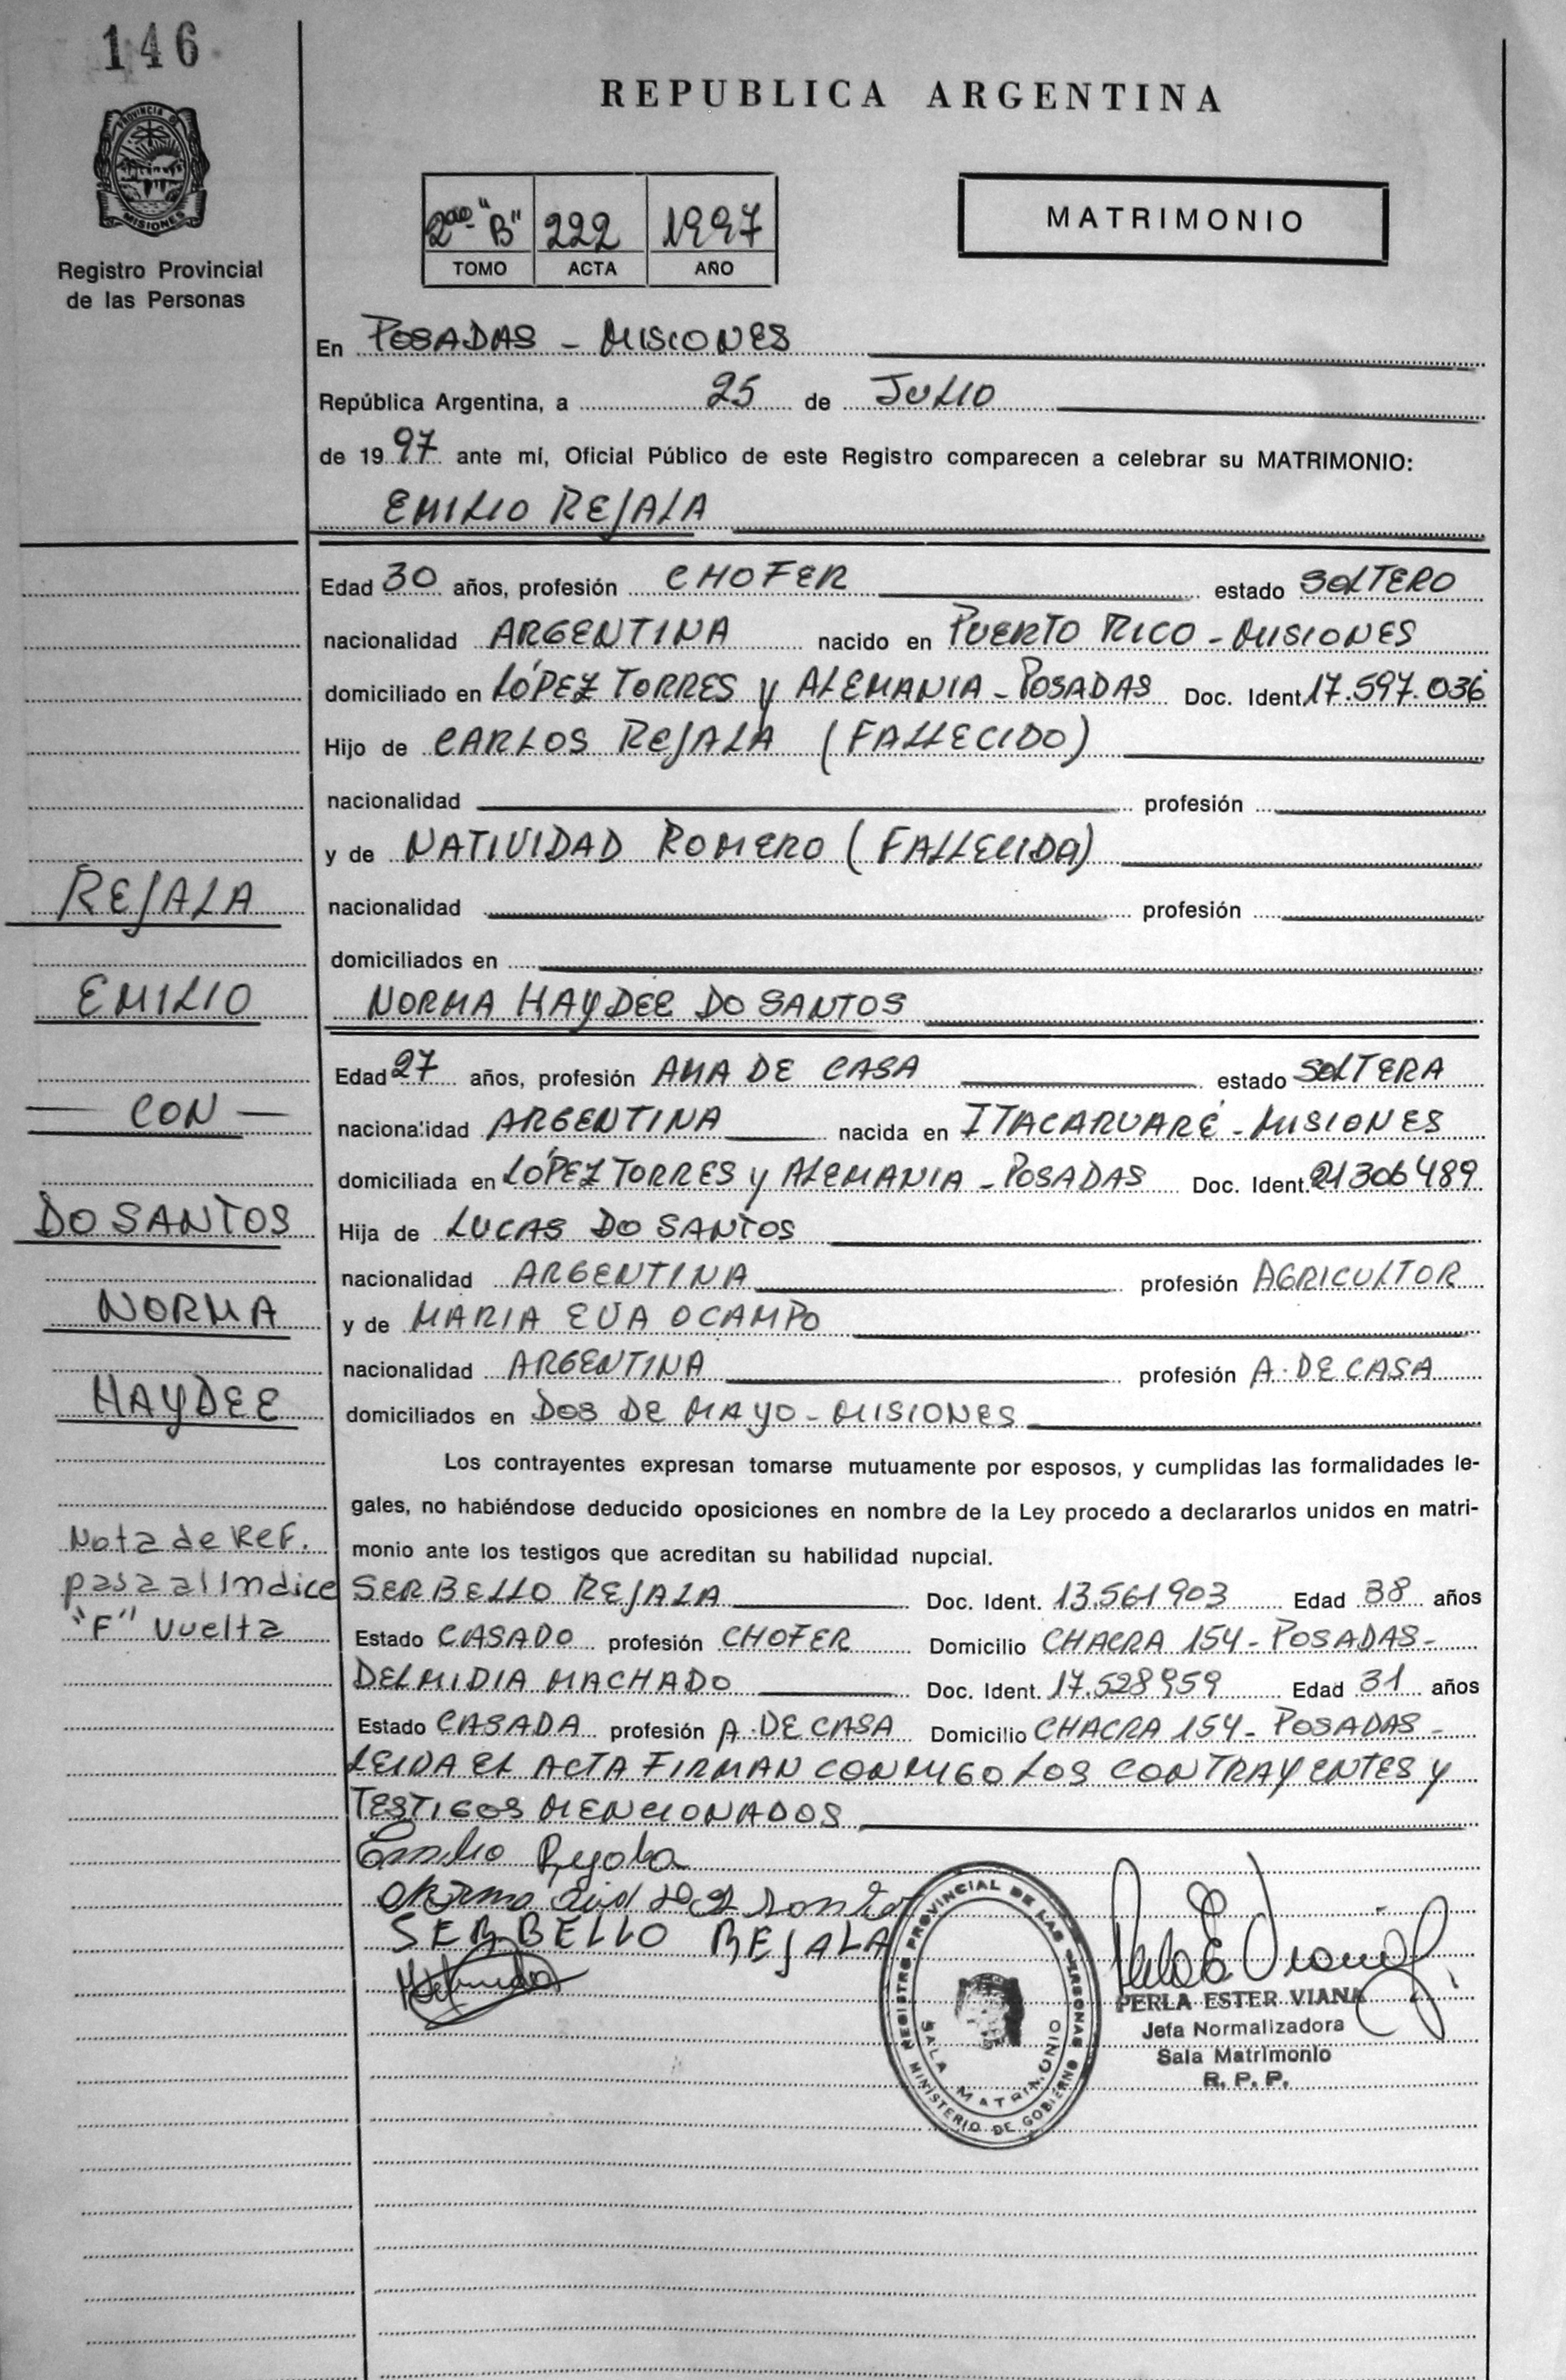 146
PROVINCIA DE
MISIONES
Registro Provincial
de las Personas
REPUBLICA ARGENTINA
2do "B" 222 1997
TOMO ACTA AÑO
MATRIMONIO
En POSADAS - MISIONES
República Argentina, a 25 de JULIO
de 1997 ante mí, Oficial Público de este Registro comparecen a celebrar su MATRIMONIO:
EMILIO REJALA
Edad 30 años, profesión CHOFER estado SOLTERO
nacionalidad ARGENTINA nacido en PUERTO RICO - MISIONES
domiciliado en LÓPEZ TORRES y ALEMANIA - POSADAS Doc. Ident. 17.597.036
Hijo de CARLOS REJALA (FALLECIDO)
nacionalidad profesión
y de NATIVIDAD ROMERO (FALLECIDA)
nacionalidad profesión
domiciliados en
NORMA HAYDEE DO SANTOS
Edad 27 años, profesión AMA DE CASA estado SOLTERA
nacionalidad ARGENTINA nacida en ITACARUARÉ - MISIONES
domiciliada en LÓPEZ TORRES y ALEMANIA - POSADAS Doc. Ident. 21306489
Hija de LUCAS DO SANTOS
nacionalidad ARGENTINA profesión AGRICULTOR
y de MARIA EVA OCAMPO
nacionalidad ARGENTINA profesión A. DE CASA
domiciliados en DOS DE MAYO - MISIONES
Los contrayentes expresan tomarse mutuamente por esposos, y cumplidas las formalidades le-
gales, no habiéndose deducido oposiciones en nombre de la Ley procedo a declararlos unidos en matri-
monio ante los testigos que acreditan su habilidad nupcial.
SERBELLO REJALA Doc. Ident. 13.561903 Edad 38 años
Estado CASADO profesión CHOFER Domicilio CHACRA 154 - POSADAS -
DELMIDIA MACHADO Doc. Ident. 17.528959 Edad 31 años
Estado CASADA profesión A. DE CASA Domicilio CHACRA 154 - POSADAS -
LEIDA EL ACTA FIRMAN CONMIGO LOS CONTRAYENTES y
TESTIGOS MENCIONADOS
Emilio Rejala
SERBELLO REJALA
REGISTRO PROVINCIAL DE LAS PERSONAS
SALA MATRIMONIO
MINISTERIO DE GOBIERNO
PERLA ESTER VIANA
Jefa Normalizadora
Sala Matrimonio
R. P. P.
REJALA
EMILIO
— CON —
DO SANTOS
NORMA
HAYDEE
Nota de REF.
pasa al Indice
"F" Vuelta